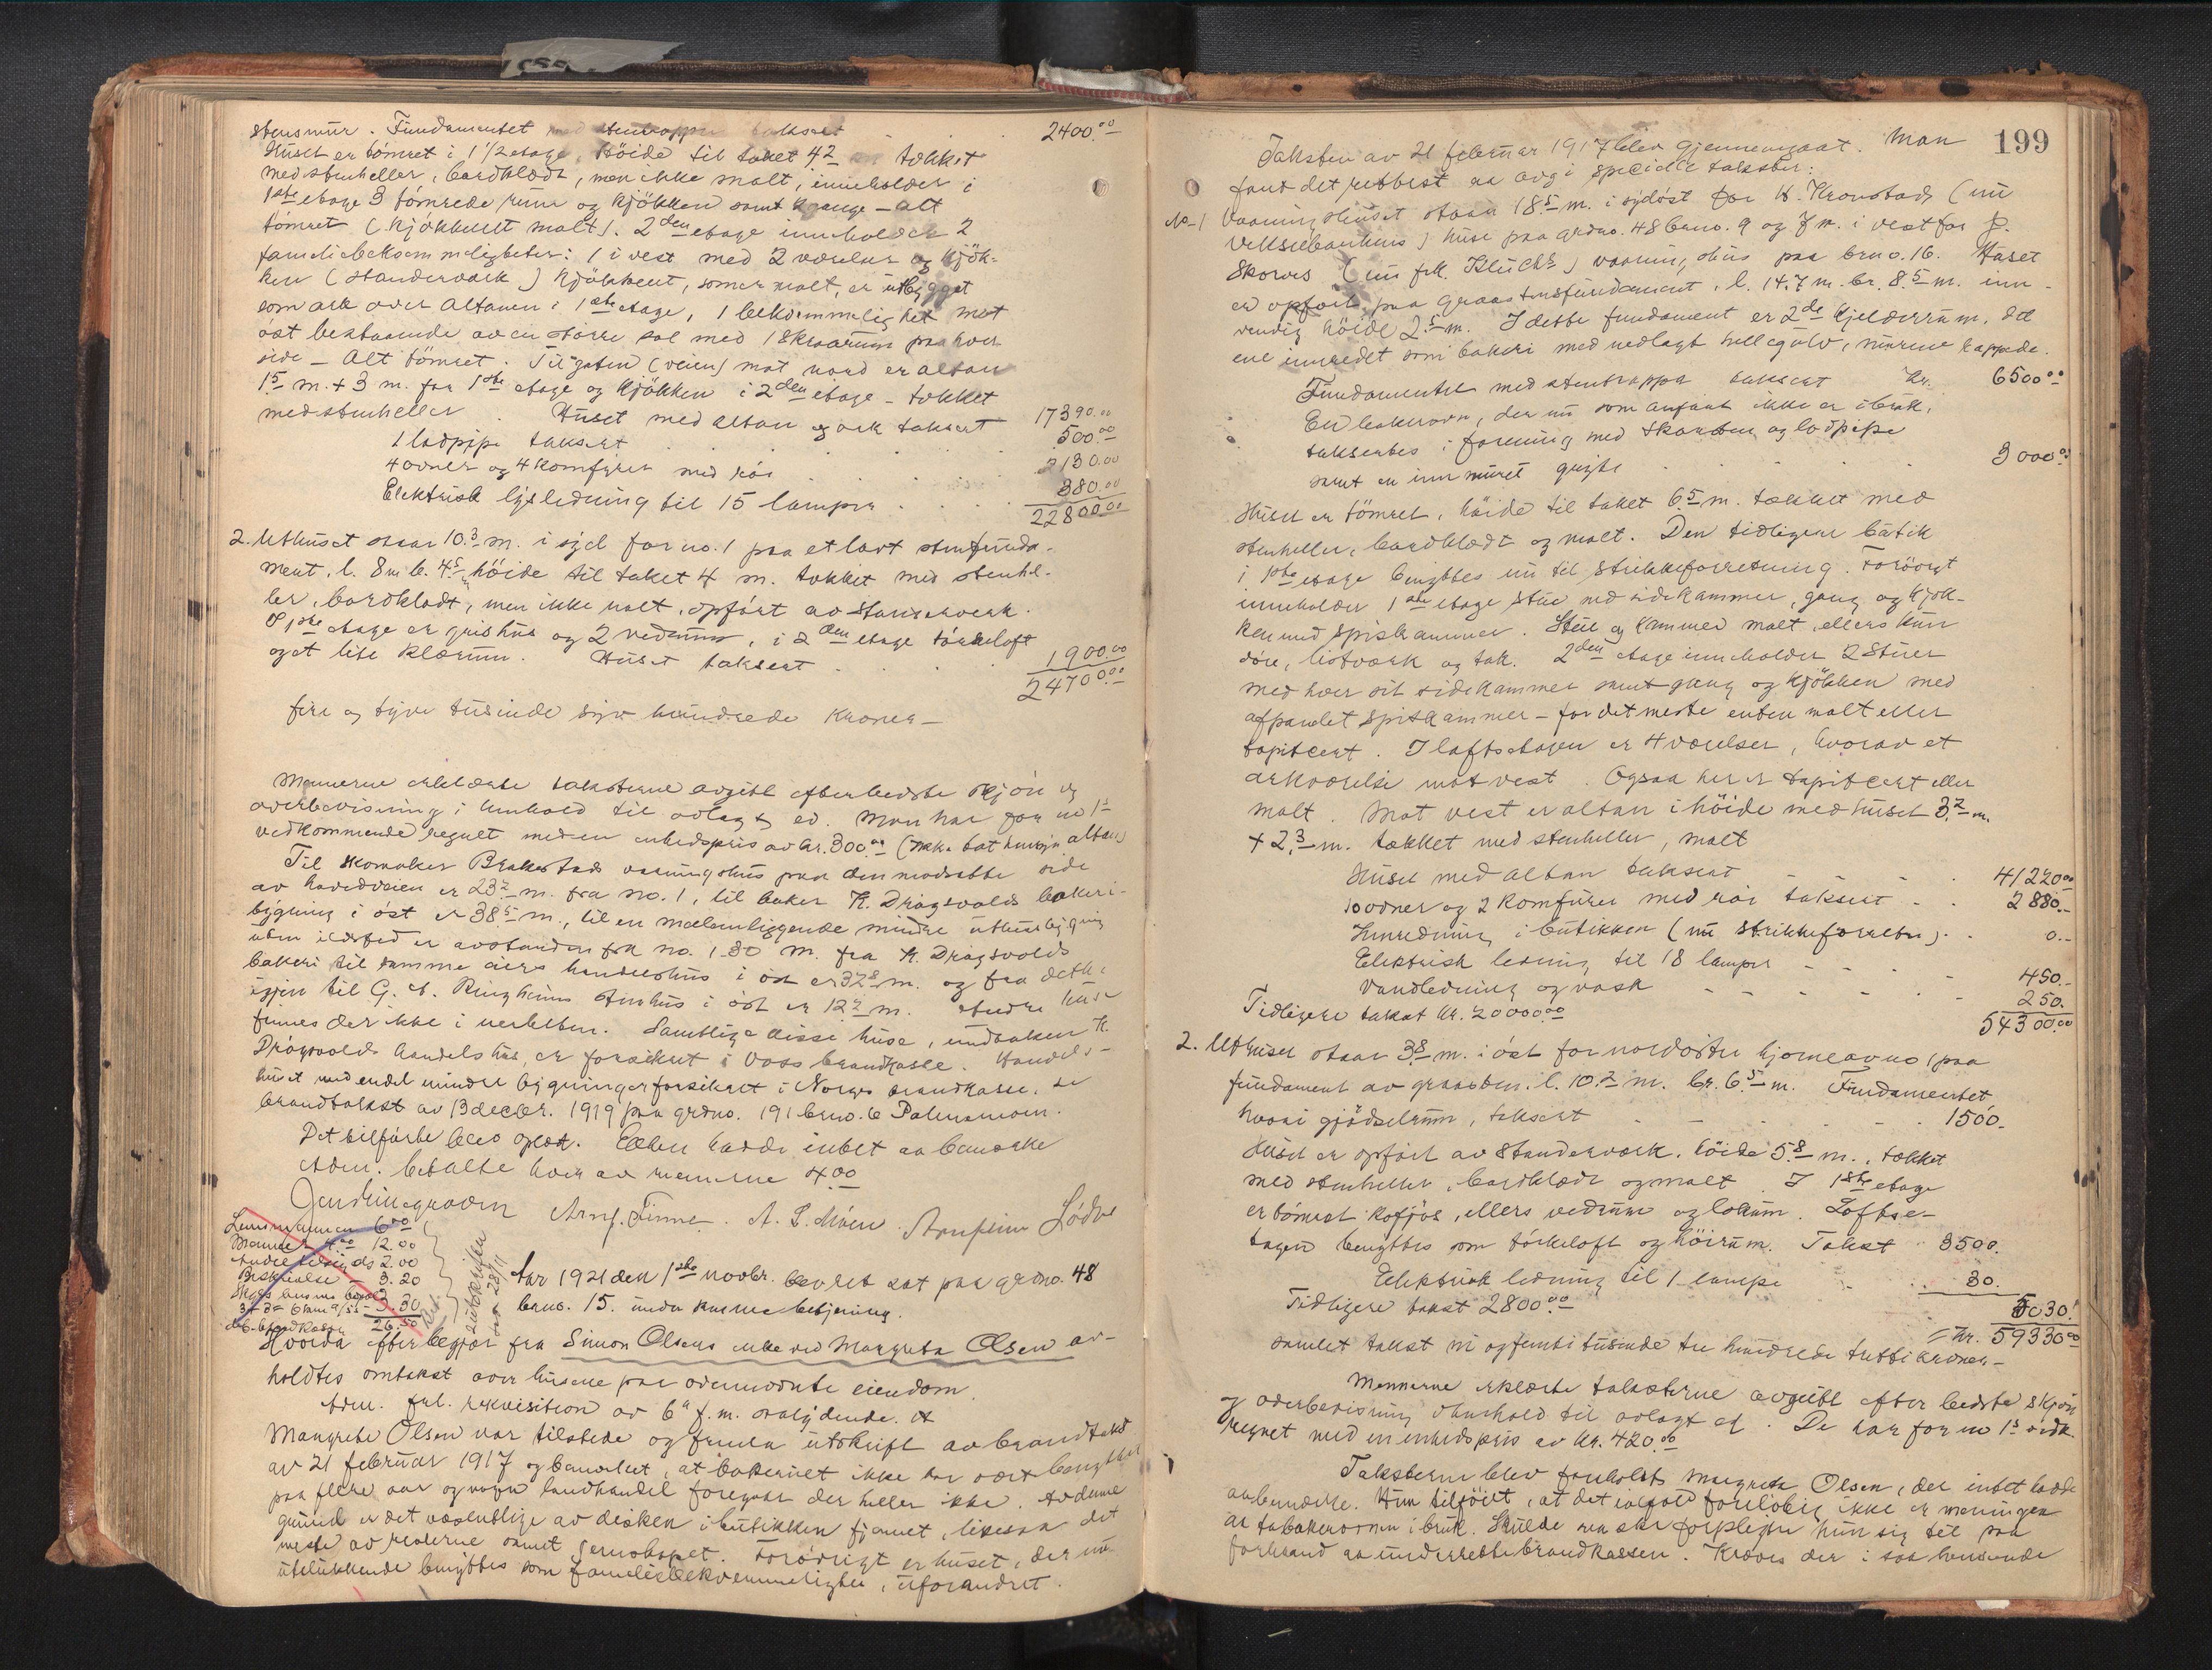 stensmur. Fundamentet med stentrapper taksert 2400.00
Huset er tømret i 1 1/2 etage, høide til taket 4.2 m tækket
med stenheller, bordklædt, men ikke malt, inneholder i
1ste etage 3 tømrede rum og kjøkken samt gange - alt
tømret (kjøkkenet malt). 2den etage inneholder 2
familiebekvemmeligheter: 1 i vest med 2 værelser og kjøk-
ken (standerværk) kjøkkenet, som er malt, er utbygget
som ark over altanen i 1ste etage, 1 bekvemmelighet mot
øst bestaaende av en større sal med 1 skraarum paa hver
side - Alt tømret. Til gaten (veien) mot nord er altan
1.5 m. + 3 m. for 1ste etage og kjøkken i 2den etage - tækket
med stenheller. Huset med altan og ark taksert 17390.00
1 ladpipe taksert 500.00
4 ovner og 4 komfyrer med rør 2130.00
Elektrisk lysledning til 15 lamper 380.00
22800.00
2. Uthuset staar 10.3 m. i syd for no. 1 paa et lavt stenfunda-
ment. l. 8 m b. 4.5 m høide til taket 4 m. tækket med stenhel-
ler, bordklædt, men ikke malt, opført av standerverk.
I 1ste etage er grishus og 2 vedrum, i 2den etage tørkeloft
og et lite klærum. Huset taksert 1900.00
24700.00
fire og tyve tusinde syv hundrede kroner -
Mennerne erklærte taksterne avgitt efter bedste skjøn og
overbevisning i henhold til avlagt ed. Man har for no 1s
vedkommende regnet med en enhedspris av kr. 300.00 (ikke tat hensyn altan)
Til skomaker Brakestads vaaningshus paa den modsatte side
av hovedveien er 23.2 m. fra no. 1, til baker K. Dragsvolds bakeri-
bygning i øst er 38.5 m., til en mellemliggende mindre uthusbygning
uten ildsted er avstanden fra no. 1 30 m. fra K. Dragsvolds
bakeri til samme eiers handelshus i øst er 32.8 m. og fra dette
igjen til G. A. Ringheims stenhus i øst er 12.2 m. Andre huse
finnes der ikke i nerheten. Samtlige disse huse, undtaken K.
Dragsvolds handelshus, er forsikret i Voss brandkasse. Handels-
huset med endel mindre bygninger forsikret i Norges brandkasse, se
brandtakst av 13 decbr. 1919 paa grdno. 191 brno. 6 Palmamoen.
Det tilførte blev oplæst. Ellen hadde intet aa bemerke
Adm. betalte hver av mennene 4.00
Jendrinegraven Arng. Finne. A. L. Moen. Arnfinn Lødve
Lensmannen 6.00
Mænner 4.00 12.00
Andre utlegg do 2.00
Beskrivelse - 3.20
3.30
26.50
utskrift
Aar 1921 den 1ste novbr. blev ret sat paa grdno. 48
brno. 15. under samme betjening.
Hvorda efter begjær fra Simon Olsens enke ved Margreta Olsen av-
holdtes omtakst over husene paa ovennævnte eiendom.
Adm. frl. rekvisition av 6te f.m. saalydende. A
Margreta Olsen var tilstede og fremla utskrift av brandtakst
av 21 februar 1917 og bemerket, at bakeriet ikke har vært benyttet
paa flere aar og nogen landhandel foregaar der heller ikke. Av denne
grund er det væsentlige av disken i butikken fjernet, likesaa det
meste av reolerne samt jernskapet. Forøvrigt er huset, der nu
utelukkende benyttes som familiebekvemmeligheter, uforandret.
199
Taksten av 21 februar 1917 blev gjennemgaat. Man
fant det rettest aa avgi specielle takster:
No 1 Vaaningshuset staar 18.5 m. i sydøst for K. Kronstads (nu
Vekselbankens) huse paa grdno. 48 brno. 9 og 7 m. i vest for P.
Skorves (nu frk. Klüchs) vaaningshus paa brno. 16. Huset
er opført paa graastensfundament, l. 14.7 m. br. 8.5 m. inn-
vendig høide 2.5 m. I dette fundament er 2de kjelderrum, det
ene innredet som bakeri med nedlagt hellegulv, murene kappede.
Fundamentet med stentrappe taksert Kr. 6500.00
En bakerovn, der nu som anført ikke er i bruk,
taksertes i forening med skorsten og ladpipe
samt en inn muret gryte 3000.00
Huset er tømret, høide til taket 6.5 m. tækket med
stenheller, bordklædt og malt. Den tidligere butik
i 1ste etage benyttes nu til strikkeforretning. Forøvrigt
inneholder 1ste etage stue med sidekammer, gang og kjøk-
ken med spiskammer. Stue og kammer malt, ellers kun
døre, listværk og tak. 2den etage inneholder 2 stuer
med hver sit sidekammer samt gang og kjøkken med
afpanelet spiskammer - for det meste enten malt eller
tapitcert. I loftsetagen er 4 værelser, hvorav et
arkværelse mot vest. Ogsaa her er tapitcert eller
malt. Mot vest er altan i høide med huset 3.2 m.
+ 2.3 m. tækket med stenheller, malt
Huset med altan taksert 41220.00
10 ovner og 2 komfyrer med rør taksert 2880.-
Innredning i butikken (nu strikkeforretn) 0.-
Elektrisk ledning til 18 lamper 450.-
Vandledning og vask 250.
Tidligere takst kr. 20000.00 54300.00
2. Uthuset staar 3.8 m. i øst for nordøstre hjørne av no 1 paa
fundament av graasten. l. 10.2 m. br. 6.5 m. Fundamentet
hvori gjødselrum, taksert 1500.-
Huset er opført av standerværk, høide 5.8 m., tækket
med stenheller, bordklædt og malt. I 1ste etage
er tømret kofjøs, ellers vedrum og lokum. Loftse-
tagen benyttes som tørkeloft og høirum. Takst 3500.
Elektrisk ledning til 1 lampe 30.
Tidligere takst 2800.00 5030.
= Kr. 59330.00
samlet takst ni og femti tusinde tre hundrede tretti kroner -
Mennerne erklærte taksterne avgitt efter bedste skjøn
og overbevisning i henhold til avlagt ed. De har for no 1s vedk.
regnet med en enhedspris av kr. 420.00
Taksterne blev foreholdt Margreta Olsen, der intet hadde
aa bemerke. Hun tilføiet, at det ialfald foreløbig ikke er meningen
at ta bakerovnen i bruk. Skulde saa ske forpligter hun sig til paa
forhaand aa underrette brandkassen. Kræves der i saa henseende